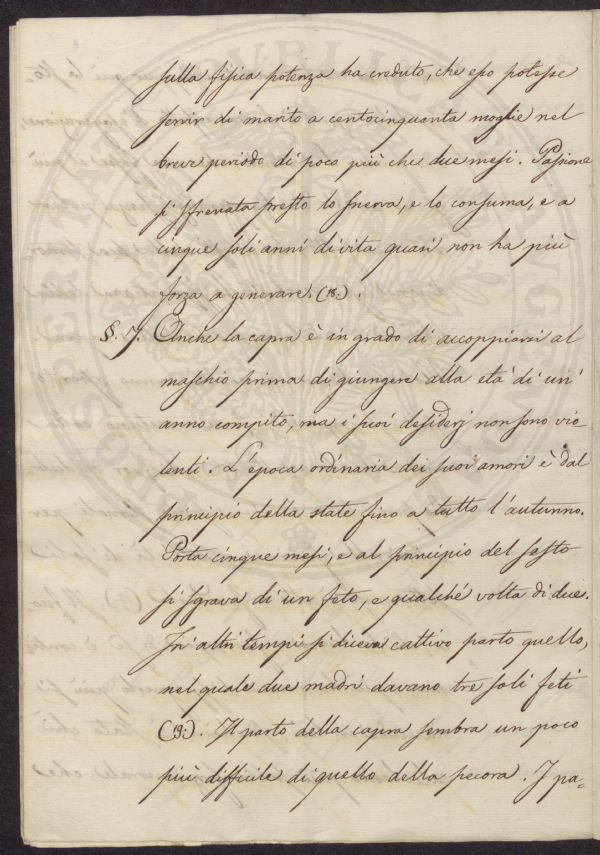 sulla fisica potenza ha creduto, che esso potesse
servir di marito a centocinquanta moglie nel
breve periodo di poco più che due mesi. Passione
sì sfrenata presto lo snerva, e lo consuma, e a
cinque soli anni di vita quasi non ha più
forza a generare. (18:).
§. 7. Anche la capra è in grado di accoppiarsi al
maschio prima di giungere alla età di un'
anno compito, ma i suoi desiderj non sono vio
lenti. L'epoca ordinaria dei suoi amori è dal
principio della state fino a tutto l'autunno.
Porta cinque mesi, e al principio del sesto
si sgrava di un feto, e qualché volta di due.
In altri tempi si diceva cattivo parto quello,
nel quale due madri davano tre soli feti
(19:). Il parto della capra sembra un poco
più difficile di quello della pecora. I pa=